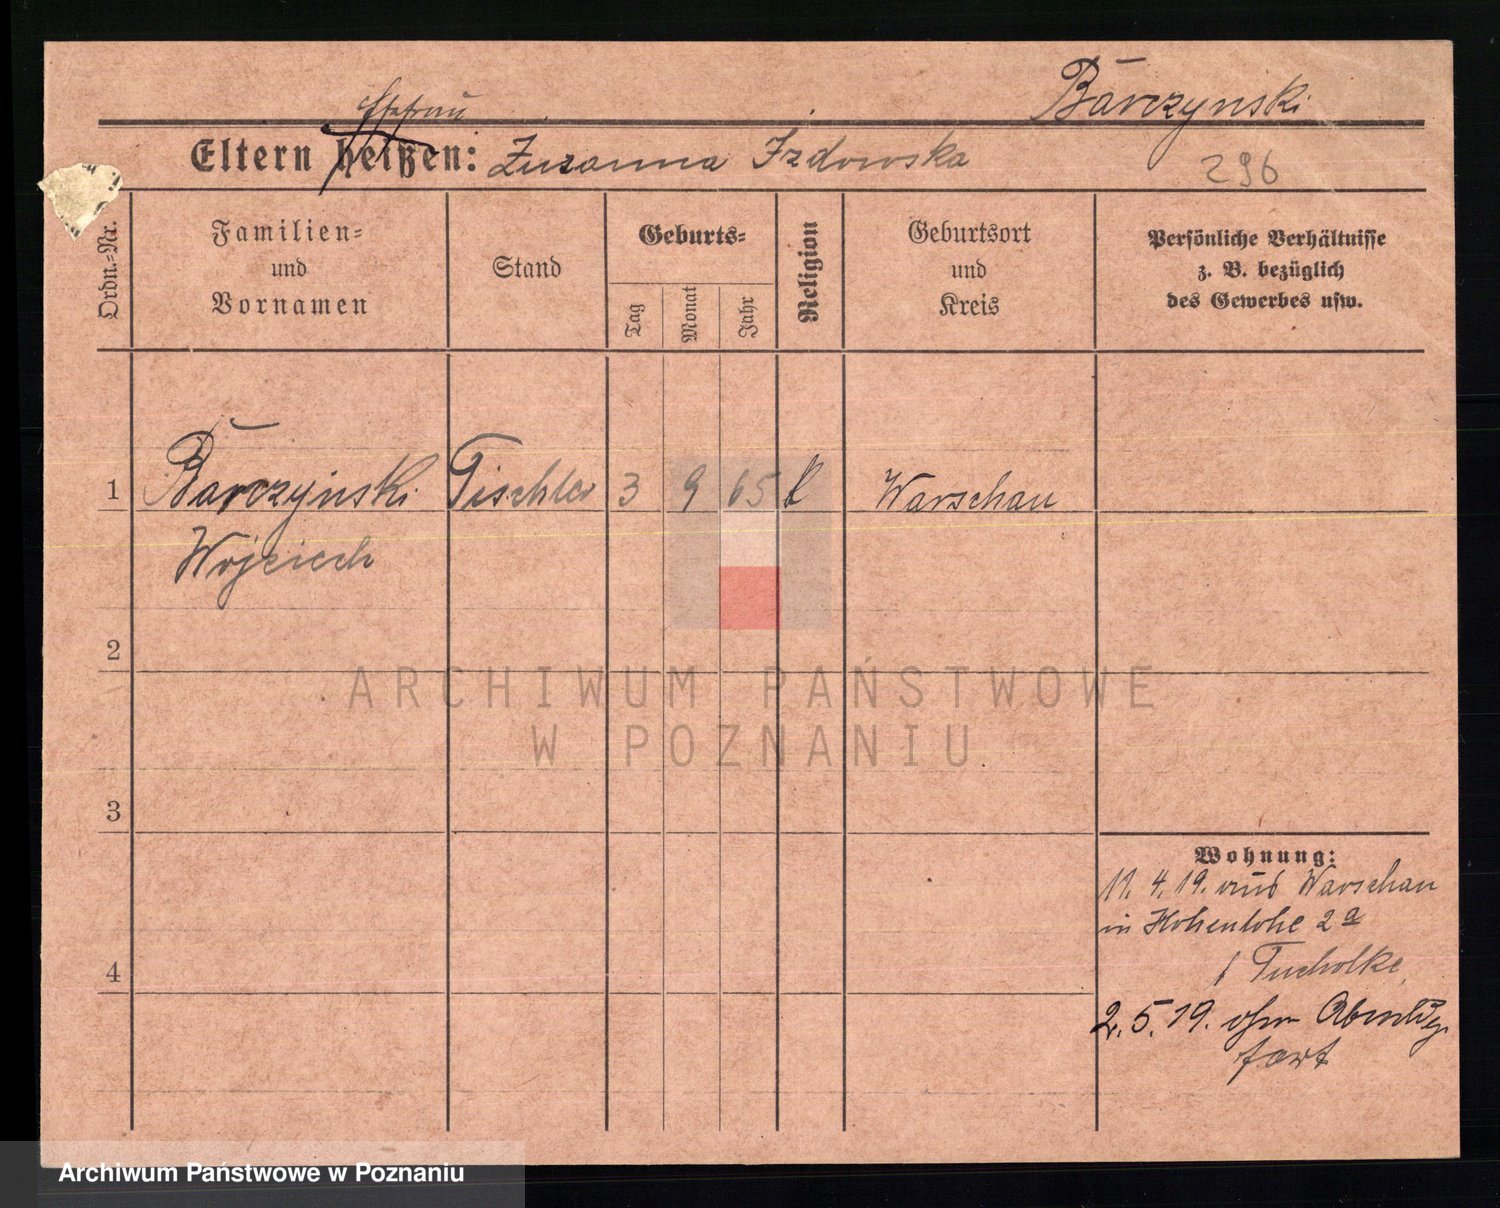 Barczynski
Ehefrau
Eltern heißen: Zuzanna Izdowska
296
Ordn.=Nr.
Familien=
und
Vornamen
Stand
Geburts=
Tag
Monat
Jahr
Religion
Geburtsort
und
Kreis
Persönliche Verhältnisse
z. B. bezüglich
des Gewerbes usw.
1 Barczynski Tischler 3 9 65 k Warschau
Wojciech
2
3
4
Wohnung:
11. 4. 19. aus Warschau
in Hohenlohe 2a
Tucholke
2. 5. 19. ohne Abmldg.
fort
ARCHIWUM PAŃSTWOWE
W POZNANIU
Archiwum Państwowe w Poznaniu